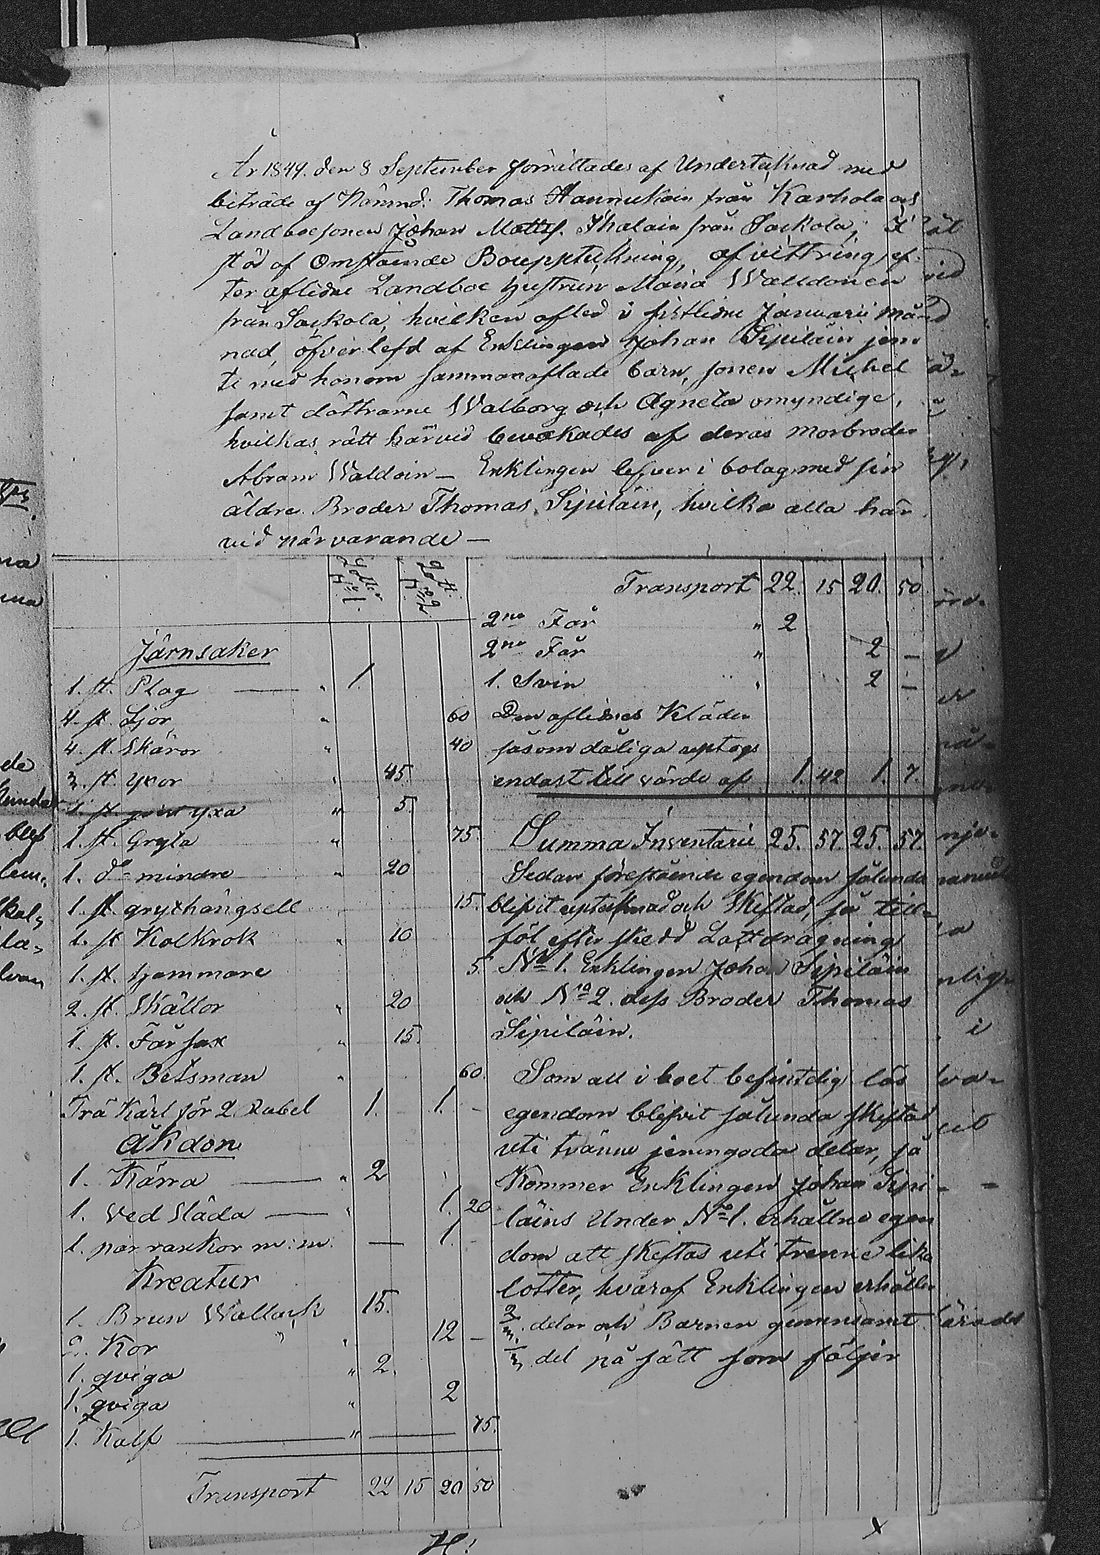 År 1849. den 8 September förrättades af Undertecknad med
biträde af Nämnd: Thomas Hannukain från Karhola och
Landboesonen Johan Matts. Ihalain från Saikola, i
stöd af Omstående Bouppteckning, afvittring ef-
ter aflidne Landboe hustrun Maria Walldonen
från Saikola, hvilken afled i sistledne Januarii må-
nad, öfverlefd af Enklingen Johan Sipiläin jem-
te med honom sammanaflade barn, sonen Michel
samt döttrarne Walborg och Agneta omyndige,
hvilkas rätt härvid bevakades af deras morbroder
Abram Waldoin — Enklingen lefver i bolag med sin
äldre Broder Thomas Sipiläin, hvilka alla här-
vid närvarande —
Lotten No 1. Lott No 2
Järnsaker
1. st. Plog — " 1.
4. st. Ljor " 60
4. st. Skäror " 40
3. st. yxor " 45.
1. st. yxa " 5.
1. st. Gryta " 75.
1. do mindre " 20
1. st. grythängsell 15.
1. st. Kolkrok " 10
1. st. Hammare 5.
2. st. Skällor " 20
1. st. Får sax " 15.
1. st. Betsman " 60.
Trä Kärl för 2. Rubel 1. 1. -
Åkdon
1. Kärra — " 2
1. Ved Släda — " 1. 20
1. par rankor m:m: — 1. -
Kreatur
1. Brun Wallack 15.
2. Kor " 12 -
1. qviga " 2.
1. qviga " 2
1. Kalf — " — 75.
Transport 22 15 20 50
Transport 22. 15 20. 50.
2ne Får " 2
2ne Får " 2 -
1. Svin " 2 -
Den aflidnes Kläder
såsom dåliga uptogs
endast till värde af 1. 42 1. 7.
Summa Inventarii 25. 57. 25. 57.
Sedan förestående egendom sålunda
blifvit uptecknad och skiftad, så till-
föl efter skedd Lottdragning
No 1. Enklingen Johan Sipiläin
och No 2. dess Broder Thomas
Sipiläin.
Som all i boet befintelig lös
egendom blifvit sålunda skiftad
uti tvänne jemngoda delar, så
Kommer Enklingen Johan Sipi-
läins Under No 1. erhållne egen
dom att skiftas uti trenne lika
lotter, hvaraf Enklingen erhåller
2/3. delar och Barnen gemensamt
1/3 del på sätt som följer